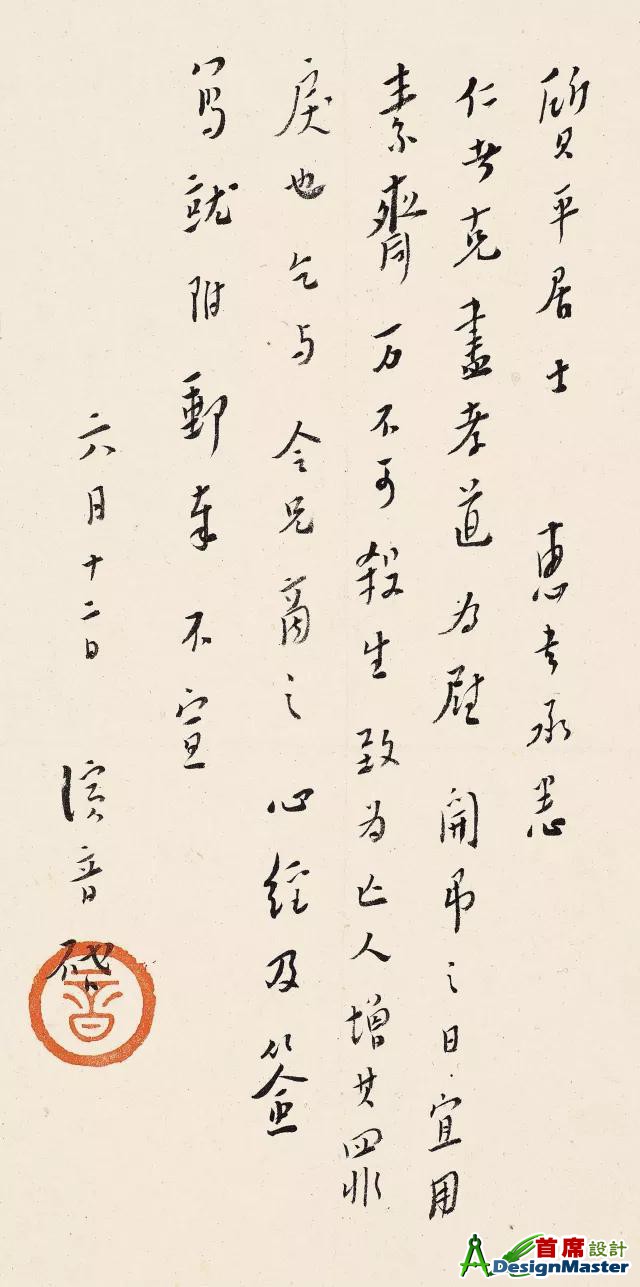 質平居士 惠書承悉
仁者克盡孝道為慰開弔之日宜用
素齋万不可殺生致為亡人增其罪
戾也乞与 令兄商之 心經及簽
寫就附郵奉不宣
六月十二日 演音啓
音
首席設計
ADesignMaster